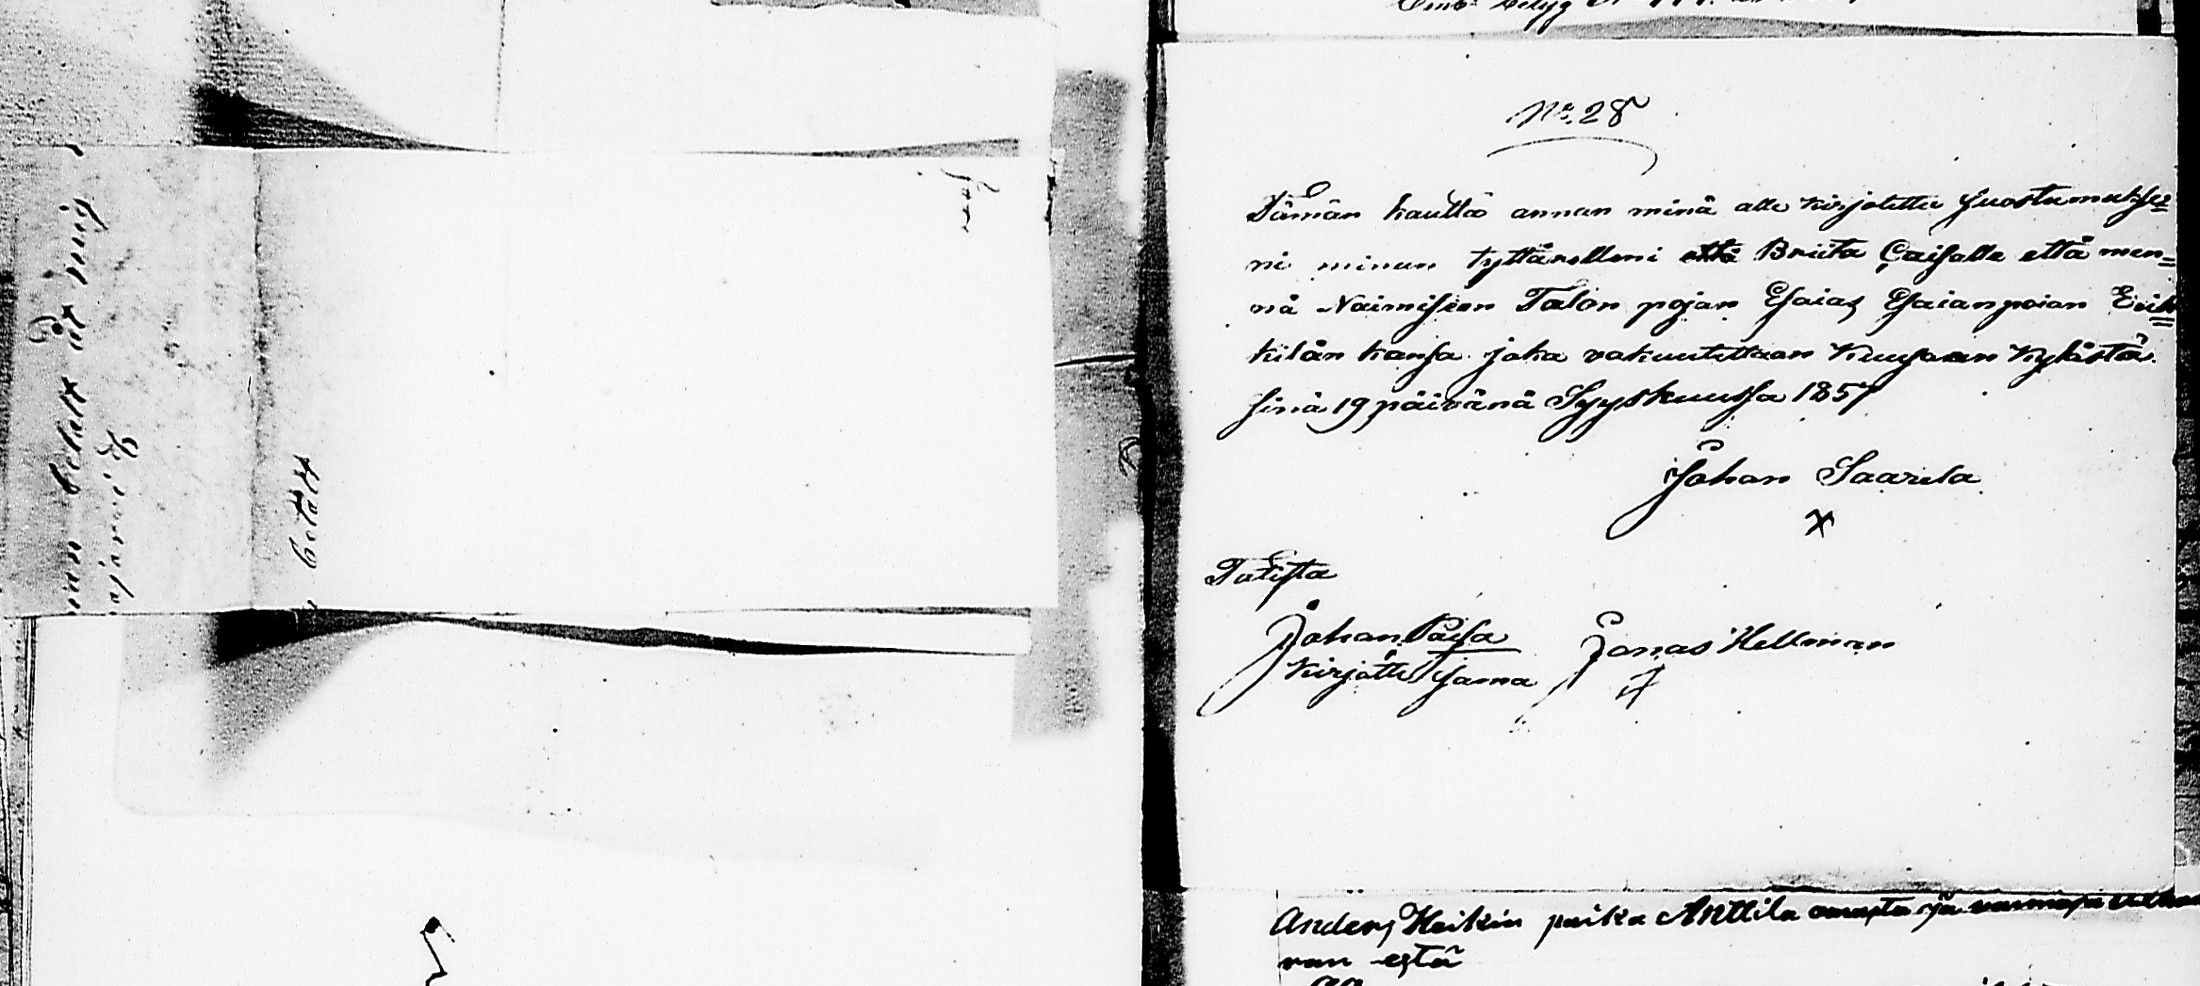 No. 28
Tämän kautta annan minä alle kirjotettu suostumukse=
ni minun tyttärelleni että Briita Caisalle että men=
nä Naimiseen Talon pojan Esaias Esaianpoian Erik=
kilän kansa joka vakuutettaan Kuusaan Kylästä.
sinä 19 päivänä Syyskuussa 1857
Johan Saarela
x
Totista
Johan Päisa
Kirjotti sama
Jonas Hellman
betalt
betalt åt mig
Anders Heikin poika Anttila
van estä